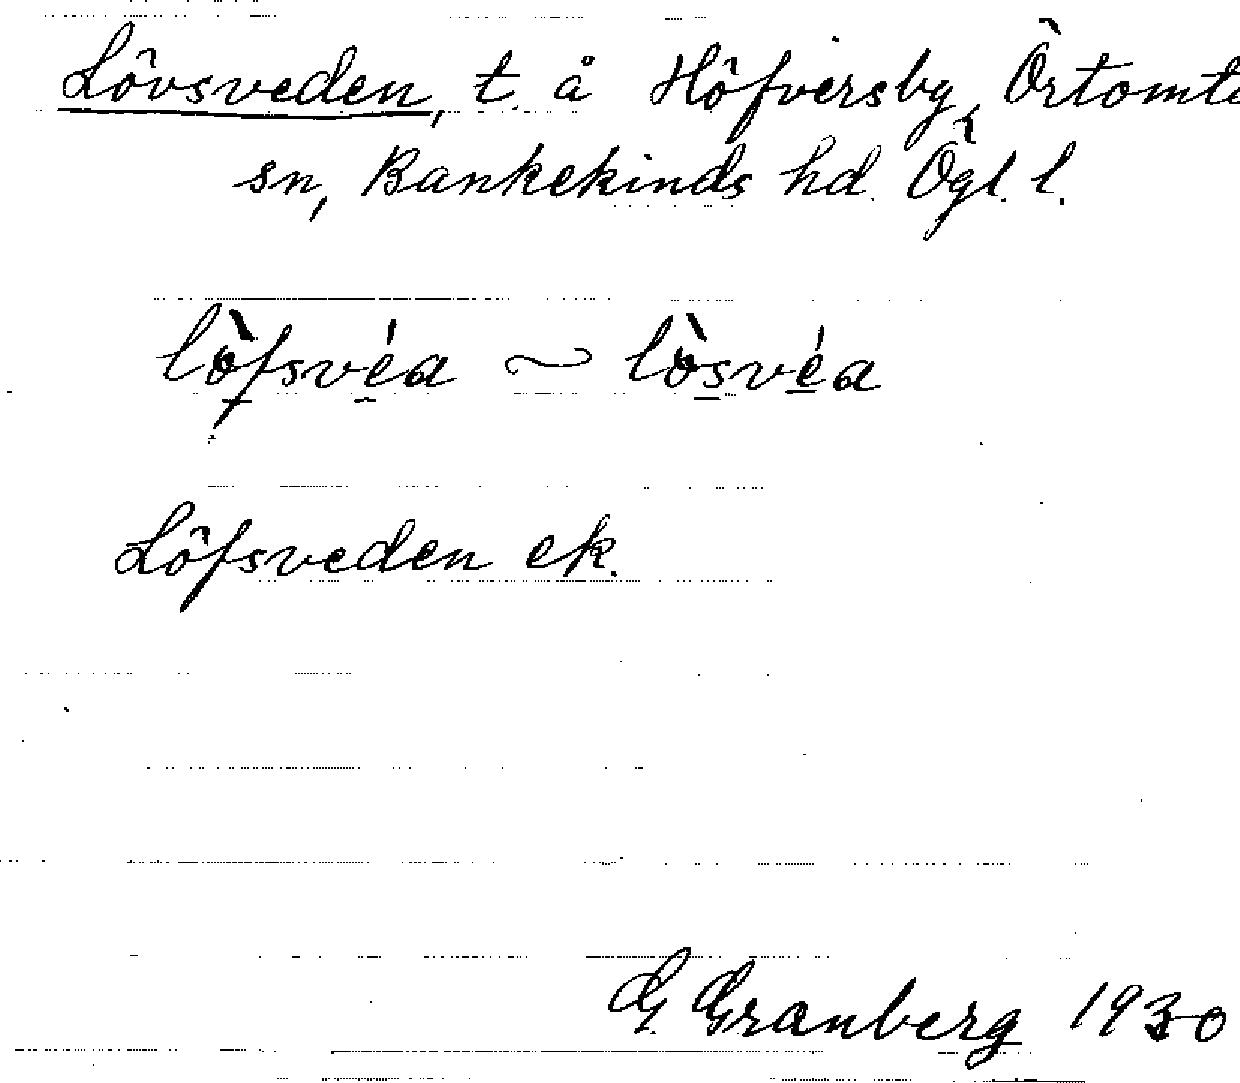 Lövsveden, t. å Höfversby, Örtomta
sn, Bankekinds hd. Ögl. l.
lö̀fsvéa ~ lö̀svéa
Löfsveden ek.
G. Granberg 1930